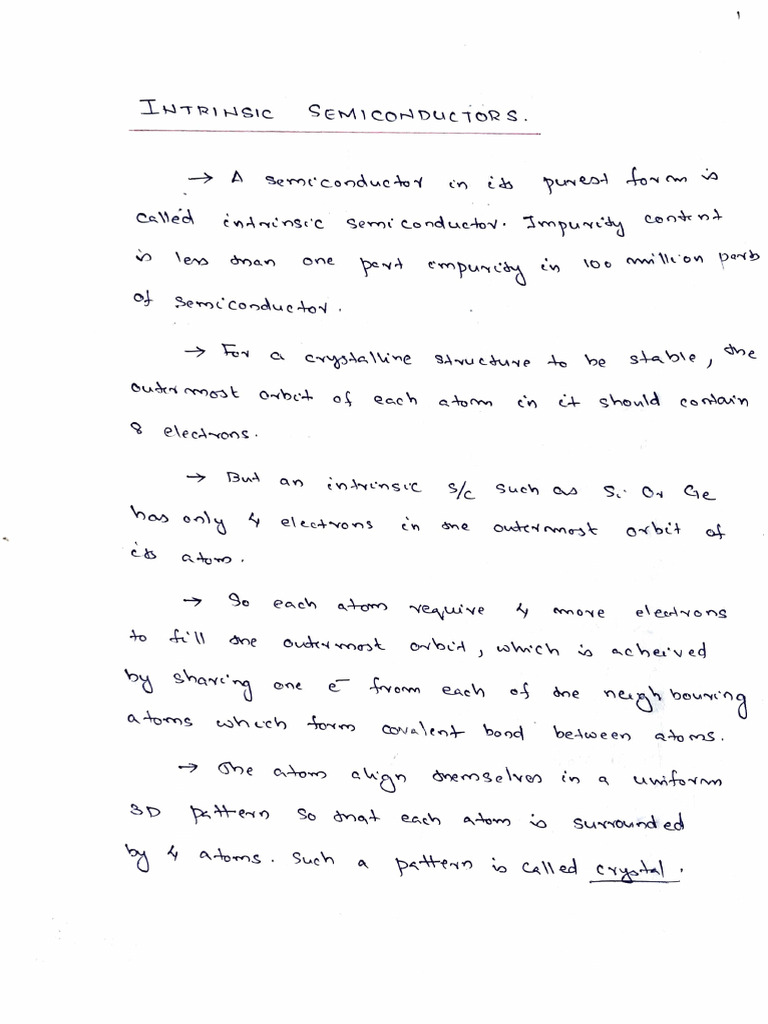 1
INTRINSIC SEMICONDUCTORS.
→ A semiconductor in its purest form is
called intrinsic semiconductor. Impurity content
is less than one part empurity in 100 million parts
of semiconductor.
→ For a crystalline structure to be stable, the
outermost orbit of each atom in it should contain
8 electrons.
→ But an intrinsic s/c such as Si Or Ge
has only 4 electrons in the outermost orbit of
its atom.
→ So each atom require 4 more electrons
to fill the outermost orbit, which is acheived
by sharing one e⁻ from each of the neighbouring
atoms which form covalent bond between atoms.
→ The atom align themselves in a uniform
3D pattern so that each atom is surrounded
by 4 atoms. Such a pattern is called crystal.